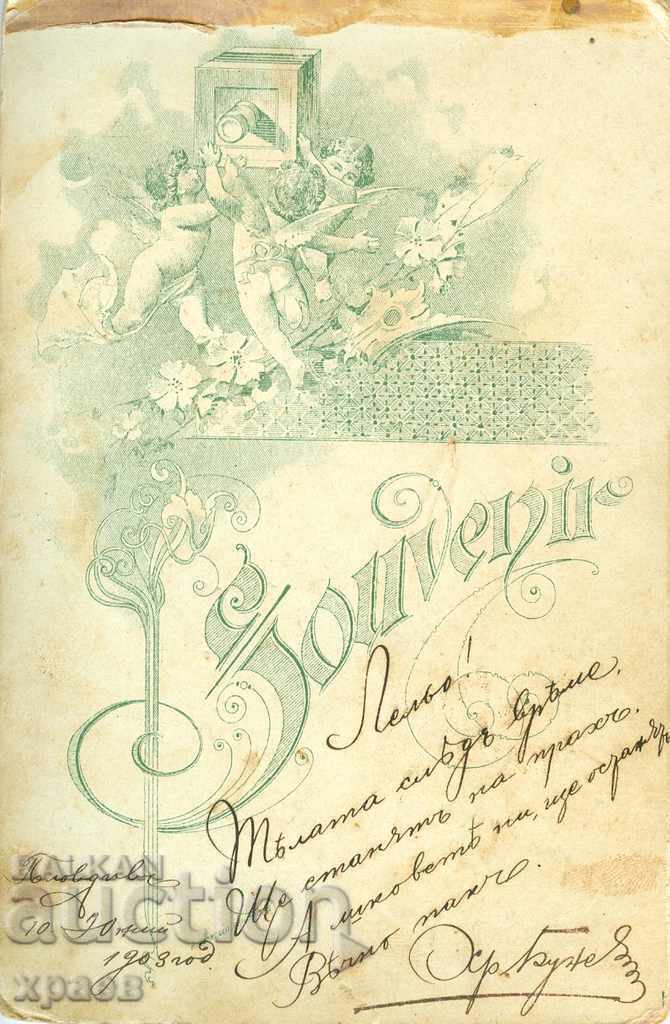 Souvenir
Лельо!
Тѣлата слѣдъ врѣме,
Ще станятъ на прахъ.
А ликоветѣ ни, ще останятъ
Вѣчно пакъ.
Пловдивъ
10. Юний
1903 год.
BALKAN
auction
храов